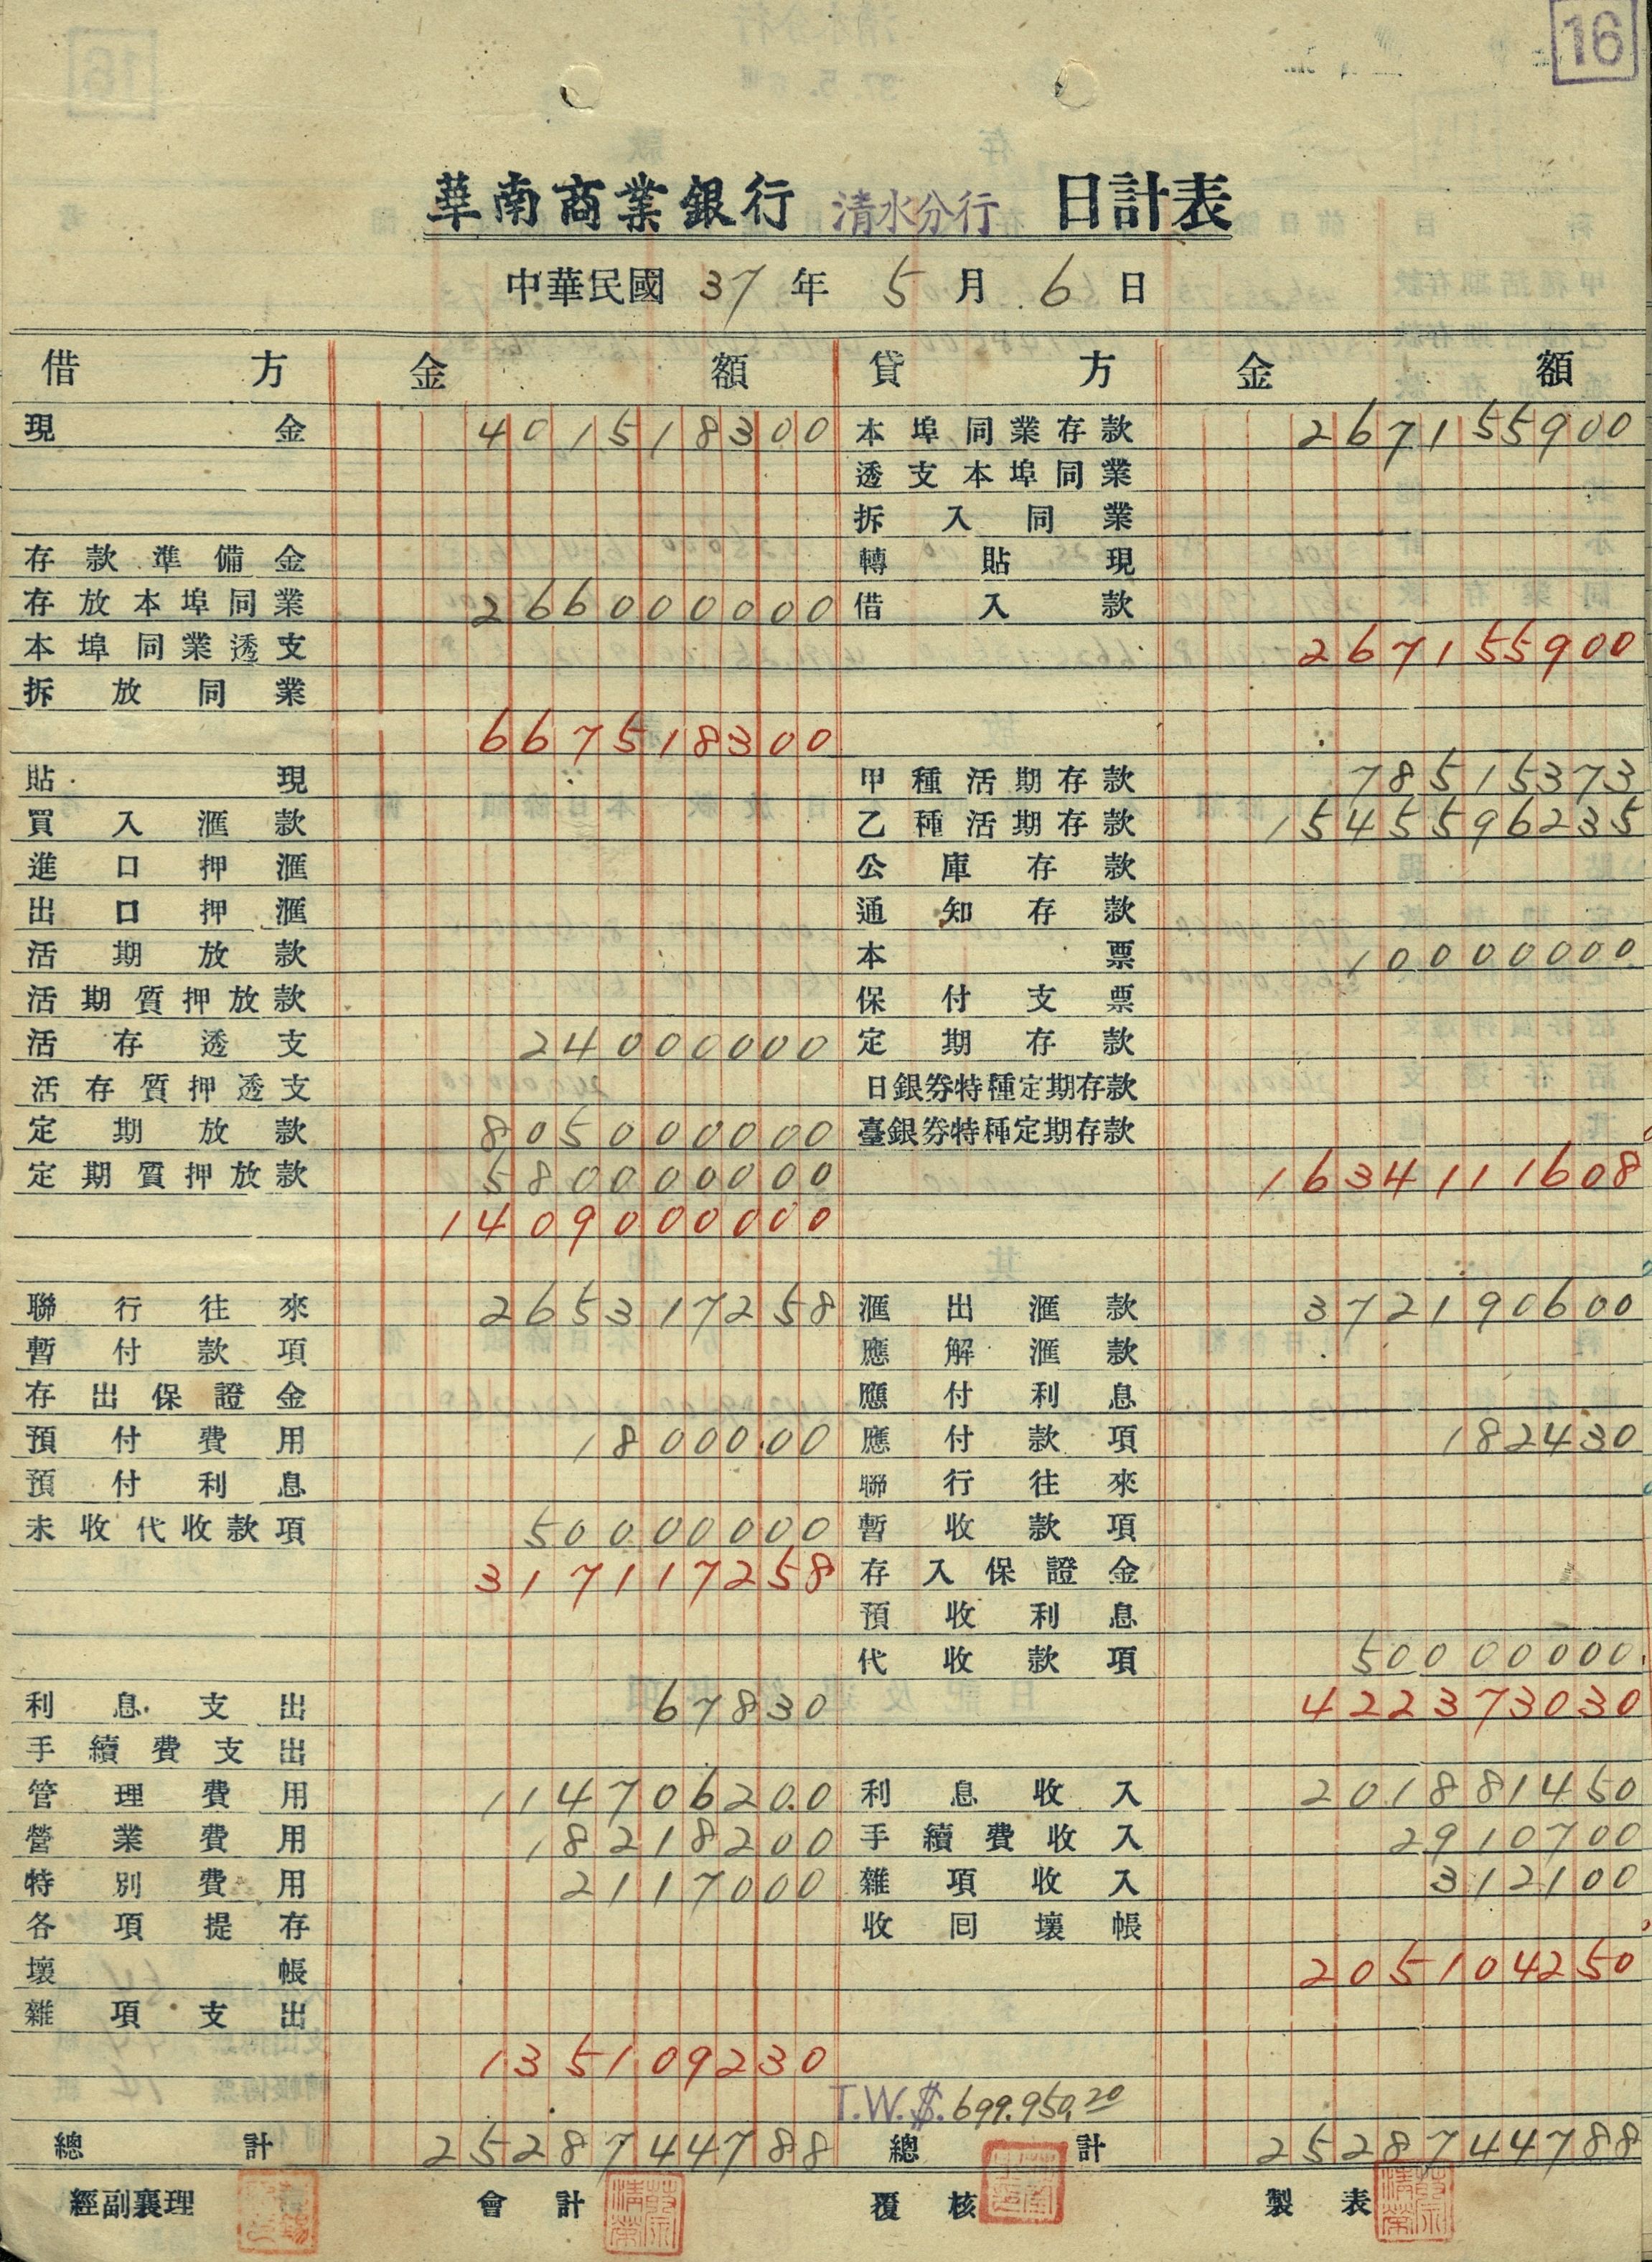 16
華南商業銀行 清水分行 日計表
中華民國 37 年 5 月 6 日
借方 金額 貸方 金額
現金 401518300 本埠同業存款 267155900
透支本埠同業
拆入同業
存款準備金 轉貼現
存放本埠同業 266000000 借入款
本埠同業透支 267155900
拆放同業
667518300
貼現 甲種活期存款 78515373
買入滙款 乙種活期存款 1545596235
進口押滙 公庫存款
出口押滙 通知存款
活期放款 本票 10000000
活期質押放款 保付支票
活存透支 24000000 定期存款
活存質押透支 日銀券特種定期存款
定期放款 805000000 臺銀券特種定期存款
定期質押放款 580000000 1634111608
1409000000
聯行往來 265317258 滙出滙款 372190600
暫付款項 應解滙款
存出保證金 應付利息
預付費用 1800000 應付款項 182430
預付利息 聯行往來
未收代收款項 50000000 暫收款項
317117258 存入保證金
預收利息
代收款項 50000000
利息支出 67830 422373030
手續費支出
管理費用 114706200 利息收入 201881450
營業費用 18218200 手續費收入 2910700
特別費用 2117000 雜項收入 312100
各項提存 收回壞帳
壞帳 205104250
雜項支出
135109230
T.W.$. 699.950.20
總計 2528744788 總計 2528744788
經副襄理 會計 覆核 製表